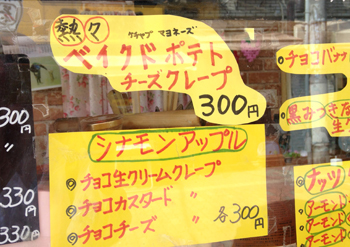 熱々
ケチャプ マヨネーズ
ベイクドポテト
チーズクレープ
300円
シナモンアップル
◎チョコ生クリームクレープ
◎チョコカスタード 〃
◎チョコチーズ 〃 各300円
チョコバナナ
黒みつきな
生
ナッツ
アーモンド
アーモンド
アーモンド
300円
〃
330円
330円